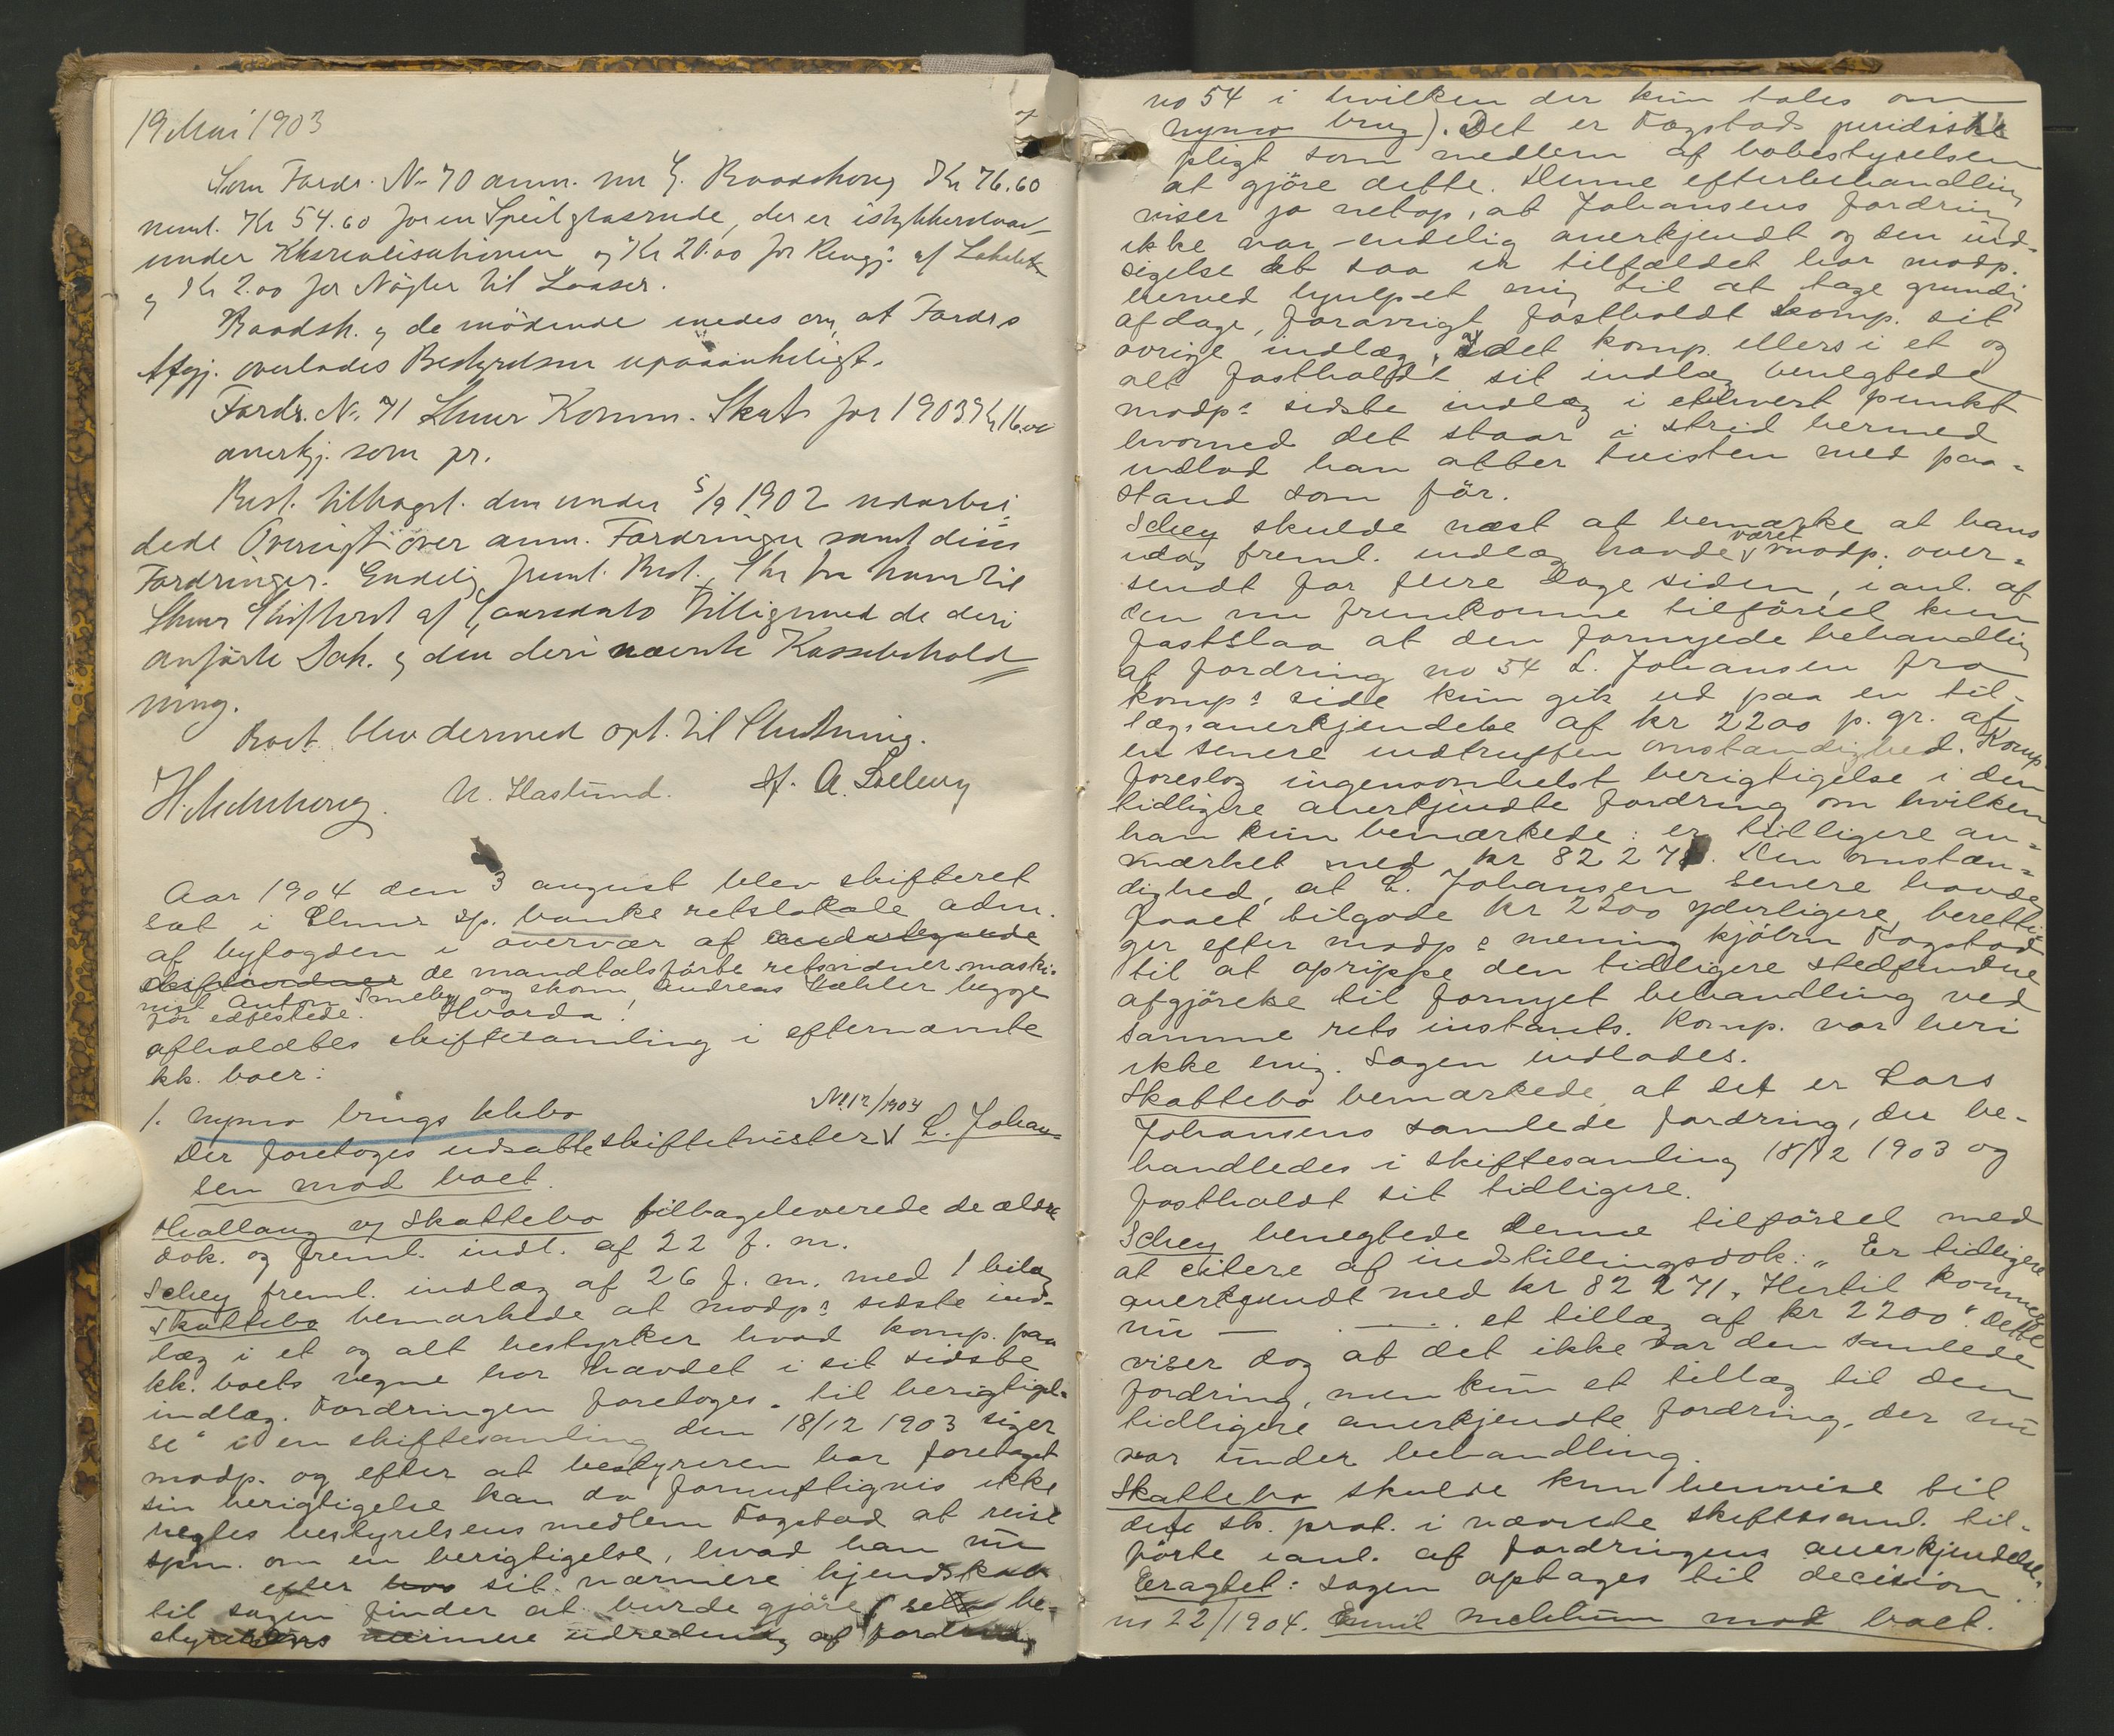 19 Mai 1903
Som Fordr. No 70 anm. nu J. Kr 76.60
neml. Kr 54.60 for en Speilglasrude, der er
under og Kr 20.00 for Rengj: af
og Kr 2.00 for Nøgler til Laaser.
og de mødende enedes om, at Fordr.s
Afgj. overlades Bestyrelsen upaaankeligt.
Fordr. No. 71 Elverum Komm. Skat for 1903 Kr 16.00
anerkj. som pr.
Best. tilbagel. den under 5/9 1902 udarbei-
dede Oversigt over anm. Fordringer samt disse
Fordringer. Endelig freml. Best. Skr fra ham til
af tilligemed de deri
anførte Dok. og den deri nævnte Kassebehold
ning.
Boet blev dermed opt. til Slutning.
N. Haslund. A.
Aar 1904 den 3 august blev skifteret
sat i sp. banks retslokale adm.
af byfogden i overvær af undertegnede
de mandtalsførte retsvidner maski-
nist Anton Smeby og skom Andreas begge
før edfestede. Hvorda!
afholdtes skiftesamling i efternævnte
kk. boer:
1. Nymo brugs kkbo No 12/1904
Der foretoges udsatte skiftetvister L. Johan-
sen mod boet.
og Skattebo tilbageleverede de ældre
dok. og freml. indl. af 22 f. m.
Schey freml. indlæg af 26 f. m. med 1 bilag
Skattebo bemærkede at modp.s sidste ind-
læg i et og alt bestyrker hvad komp. paa
kk. boets vegne har hævdet i sit sidste
indlæg. Fordringen foretoges „til berigtigel-
se“ i en skiftesamling den 18/12 1903 siger
modp. og efter at bestyreren har foretaget
sin berigtigelse kan da fornuftigvis ikke
negtes bestyrelsens medlem Fogstad at reise
spm. om en berigtigelse, hvad han nu
efter sit nærmere kjendskab
til sagen finder at burde gjøre (se be-
styrelsens nærmere udredning af fordring
no 54 i hvilken der kun tales om
nymo brug). Det er Fogstads juridiske
pligt som medlem af bobestyrelsen
at gjöre dette. Denne efterbehandling
viser jo netop, at Johansens fordring
ikke var endelig anerkjendt og den ind-
sigelse at saa er tilfældet har modp.
herved hjulpet mig til at tage grundig
afdage, forøvrigt fastholdt komp. sit
øvrige indlæg. Idet komp. ellers i et og
alt fastholdt sit indlæg benegtede
modp.s sidste indlæg i ethvert punkt
hvormed det staar i strid hermed
indlod han atter tvisten med paa-
stand som för.
Schey skulde næst at bemærke at hans
idag freml. indlæg havde været modp. over-
sendt for flere dage siden, i anl. af
den nu fremkomne tilförsel kun
fastslaa at den fornyede behandling
af fordring no 54 L. Johansen fra
komp.s side kun gik ud paa en til-
lægsanerkjendelse af kr 2200 p. gr. af
en senere indtruffen omstændighed. Komp.
foreslog ingensomhelst berigtigelse i den
tidligere anerkjendte fordring om hvilken
han kun bemærkede: er tidligere an-
mærket med kr 82 271. Den omstæn-
dighed, at L. Johansen senere havde
faaet tilgode kr 2200 yderligere, beretti-
ger efter modp.s mening kjöbm Fogstad
til at oprippe den tidligere stedfundne
afgjörelse til fornyet behandling ved
samme rets instants. Komp. var heri
ikke enig. Sagen indlodes.
Skattebo bemærkede at det er Lars
Johansens samlede fordring, der be-
handledes i skiftesamling 18/12 1903 og
fastholdt sit tidligere.
Schey benegtede denne tilförsel med
at citere af indstillingsdok: „Er tidligere
anerkjendt med kr 82 271. Hertil kommer
nu — . —— . et tillæg af kr 2200“. Dette
viser dog at det ikke var den samlede
fordring, men kun et tillæg til den
tidligere anerkjendte fordring, der nu
var under behandling.
Skattebo skulde kun henvise til
det sk. prot. i nævnte skiftesaml. til-
förte i anl. af fordringens anerkjendelse.
Eragtet: Sagen optages til decision.
no 22/1904. Emil Mehlum mod boet.